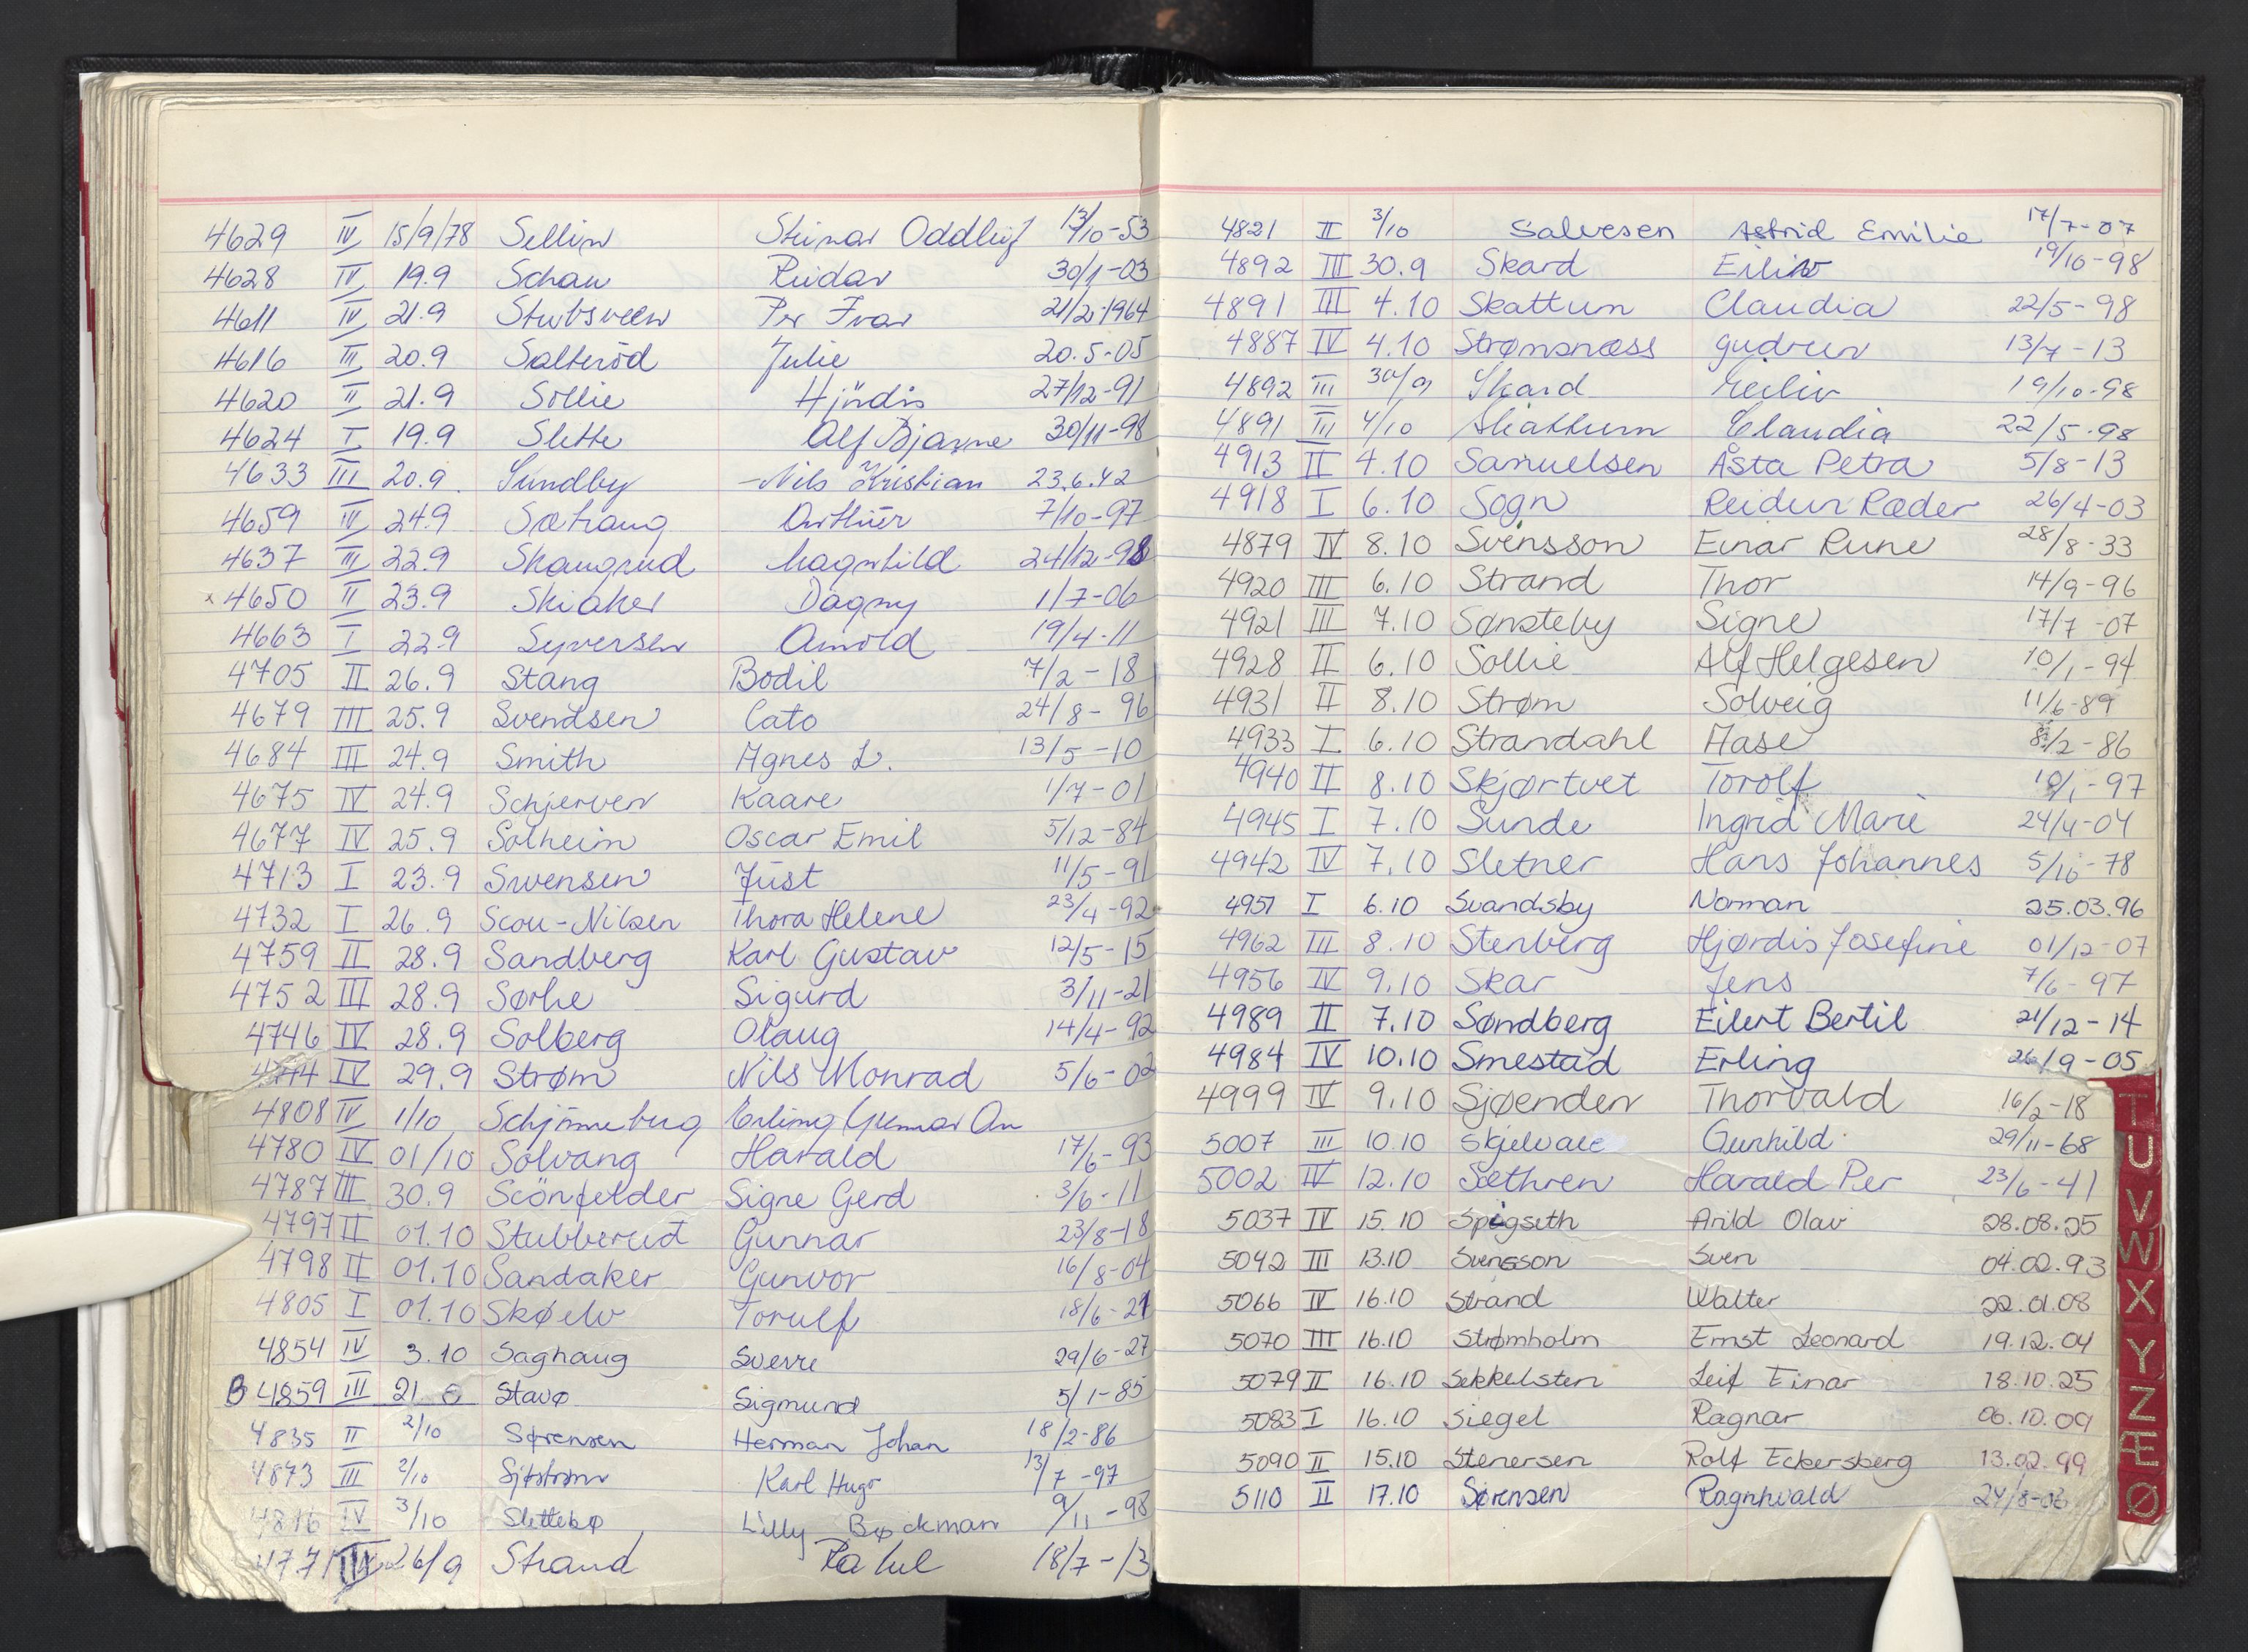 4629 IV 15/9/78 Sellin Steinar Oddleif 13/10-53
4628 IV 19.9 Schau Reidar 30/1-03
4611 IV 21.9 Stubsveen Per Ivar 21/2-1964
4616 III 20.9 Salteröd Julie 20.5-05
4620 II 21.9 Sollie Hjördis 27/12-91
4624 I 19.9 Slette Alf Bjarne 30/11-98
4633 III 20.9 Sundby Nils Kristian 23.6.42
4659 IV 24.9 Sætrang Arthur 7/10-97
4637 III 22.9 Skaugrud Magnhild 24/12-98
x 4650 II 23.9 Skiaker Dagny 1/7-06
4663 I 22.9 Syversen Arnold 19/4-11
4705 II 26.9 Stang Bodil 7/2-18
4679 III 25.9 Svendsen Cato 24/8-96
4684 III 24.9 Smith Agnes L. 13/5-10
4675 IV 24.9 Schjerven Kaare 1/7-01
4677 IV 25.9 Solheim Oscar Emil 5/12-84
4713 I 23.9 Swensen Just 11/5-91
4732 I 26.9 Scou-Nilsen Thora Helene 23/4-92
4759 II 28.9 Sandberg Karl Gustav 12/5-15
4752 III 28.9 Sørlie Sigurd 3/11-21
4746 IV 28.9 Solberg Olaug 14/4-92
4744 IV 29.9 Strøm Nils Monrad 5/6-02
4808 IV 1/10 Erling Gunnar
4780 IV 01/10 Solvang Harald 17/6-93
4787 III 30.9 Scönfelder Signe Gerd 3/6-11
4797 II 01.10 Stubberud Gunnar 23/8-18
4798 II 01.10 Sandaker Gunvor 16/8-04
4805 I 01.10 Skøelv Torulf 18/6-21
4854 IV 3.10 Saghaug Sverre 29/6-27
B 4859 III 21 Stavø Sigmund 5/1-85
4835 II 2/10 Sørensen Herman Johan 18/2-86
4873 III 2/10 Sjøstrøm Karl Hugo 13/7-97
4816 IV 3/10 Slettebø Lilly Bøckman 9/11-98
4771 26/9 Strand 18/7-13
4821 II 3/10 Salvesen Astrid Emilie 17/7-07
4892 III 30.9 Skard Eiliv 19/10-98
4891 III 4.10 Skattum Claudia 22/5-98
4887 IV 4.10 Strømsnæss Gudrun 13/7-13
4892 III 30/9 Skard Eiliv 19/10-98
4891 III 4/10 Skattum Claudia 22/5-98
4913 II 4.10 Samuelsen Åsta Petra 5/8-13
4918 I 6.10 Sogn Reidun Ræder 26/4-03
4879 IV 8.10 Svensson Einar Rune 28/8-33
4920 III 6.10 Strand Thor 14/9-96
4921 III 7.10 Sønsteby Signe 17/7-07
4928 II 6.10 Sollie Alf Helgesen 10/1-94
4931 II 8.10 Strøm Solveig 11/6-89
4933 I 6.10 Strandahl Aase 2-86
4940 II 8.10 Skjørtvet Torolf 10/1-97
4945 I 7.10 Sunde Ingrid Marie 24/4-04
4942 IV 7.10 Sletner Hans Johannes 5/10-78
4951 I 6.10 Svandsby Norman 25.03.96
4962 III 8.10 Stenberg Hjørdis Josefine 01/12-07
4956 IV 9.10 Skar Jens 7/6-97
4989 II 7.10 Søndberg Eilert Bertil 21/12-14
4984 IV 10.10 Smestad Erling 26/9-05
4999 IV 9.10 Sjøenden Thorvald 16/2-18
5007 III 10.10 Skjelvale Gunhild 29/11-68
5002 IV 12.10 Sæthren Harald Per 23/6-41
5037 IV 15.10 Spigseth Arild Olav 28.08.25
5042 III 13.10 Svensson Sven 04.02.93
5066 IV 16.10 Strand Walter 22.01.08
5070 III 16.10 Strømholm Ernst Leonard 19.12.04
5079 II 16.10 Sekkelsten Leif Einar 18.10.25
5083 I 16.10 Siegel Ragnar 06.10.09
5090 II 15.10 Stenersen Rolf Eckersberg 13.02.99
5110 II 17.10 Sørensen Ragnhvald 24/8-03
T
U
V
W
X
Y
Z
Æ
Ø